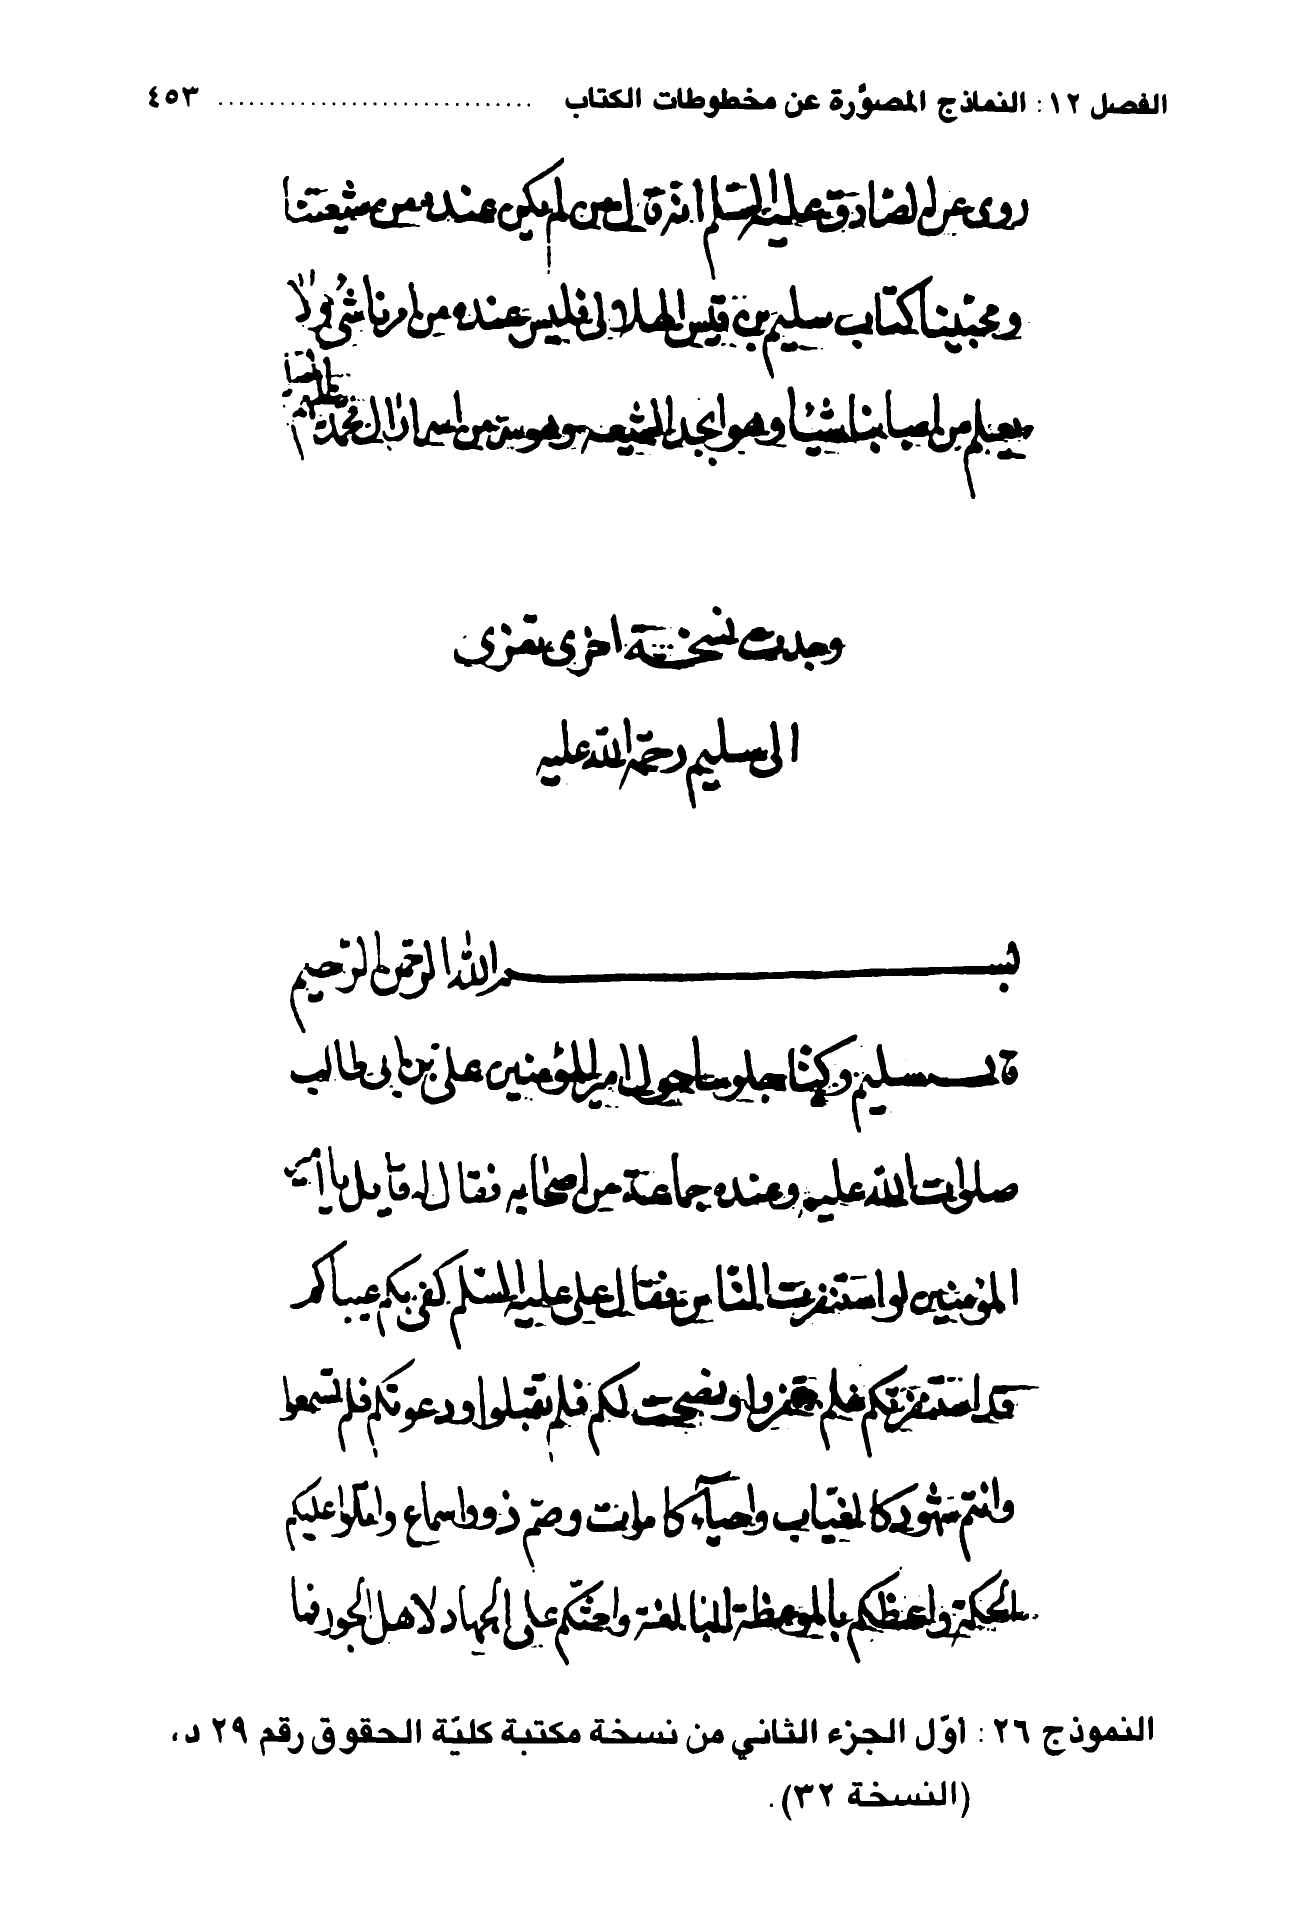 الفصل ١٢: النماذج المصوَّرة عن مخطوطات الكتاب ................................ ٤٥٣
روى عن الصادق عليه السلم انه قال من لم يكن عنده من شيعتنا
ومحبينا كتاب سليم بن قيس الهلالى فليس عنده من امرنا شئ ولا
يعلم من اسبابنا شيئا وهو ابجد الشيعه وهو سر من اسرار ال محمد
وجدت نسخة اخرى تعزى
الى سليم رحمة الله عليه
بسم الله الرحمن الرحيم
قال سليم وكنا جلوسا حول امير المؤمنين على بن ابى طالب
صلوات الله عليه وعنده جماعة من اصحابه فقال له قايل يا امير
المؤمنين لو استنفرت الناس فقال على عليه السلم كفى بكم عيباكم
قد استنفرتكم فلم تنفروا ونصحت لكم فلم تقبلوا ودعوتكم فلم تسمعوا
وانتم شهود كالغياب واحياء كاموات وصم ذوو اسماع واتلوا عليكم
الحكمة واعظكم بالموعظة البالغة واحثكم على الجهاد لاهل الجور فما
النموذج ٢٦: أوّل الجزء الثاني من نسخة مكتبة كليّة الحقوق رقم ٢٩ د،
(النسخة ٣٢).